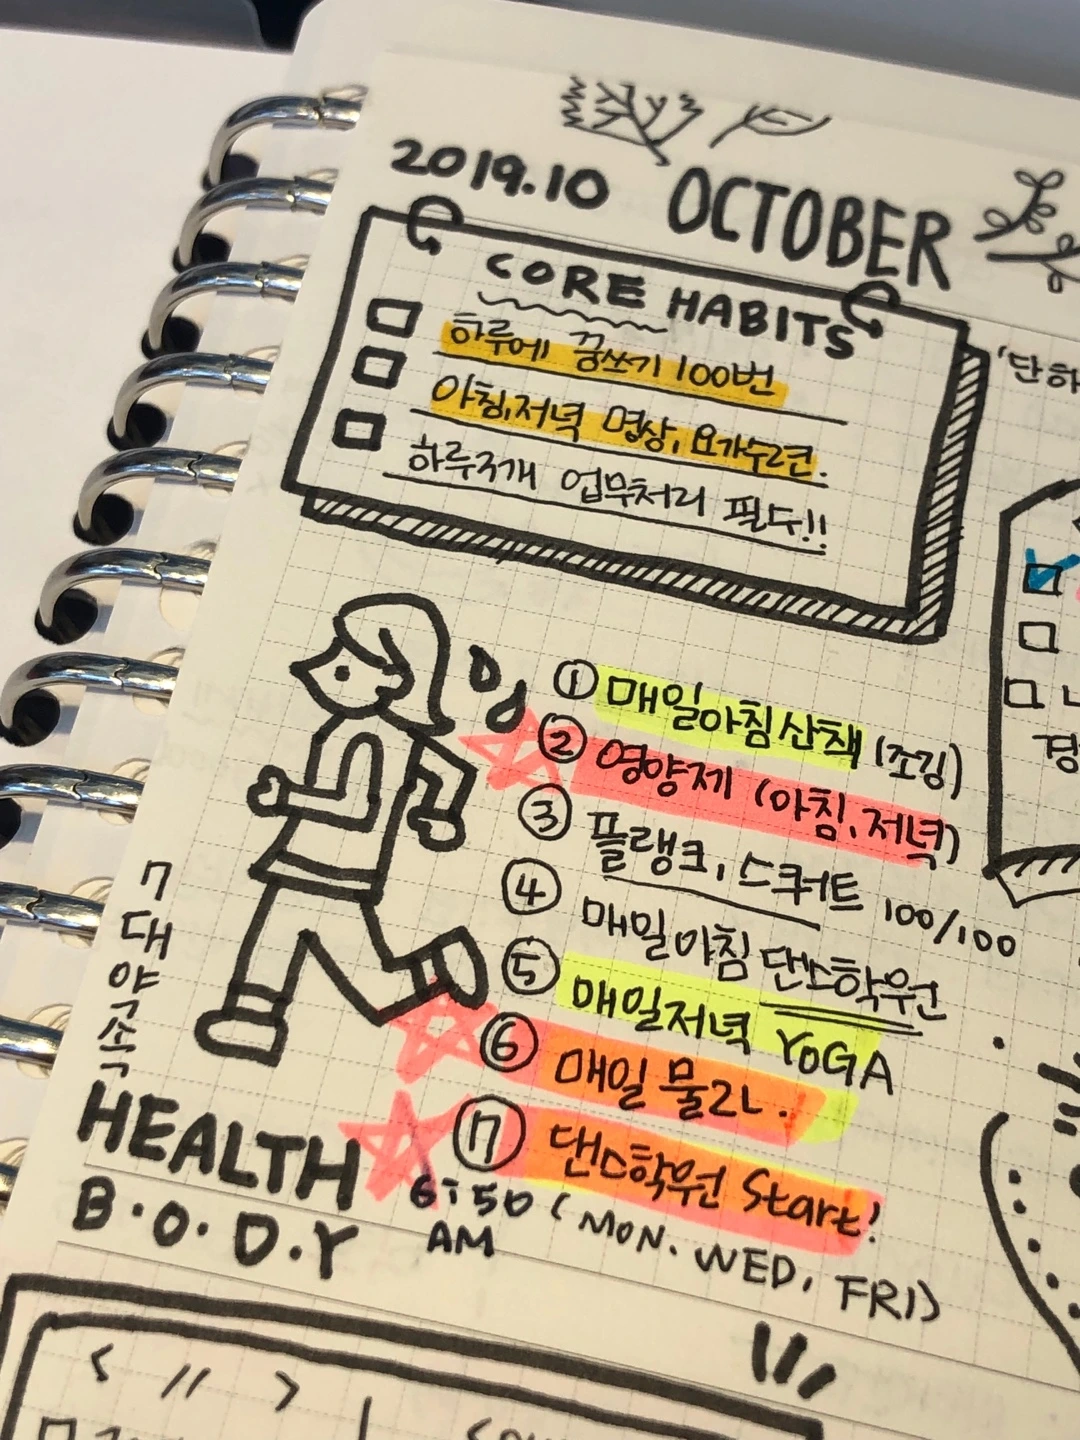 2019.10 OCTOBER
CORE HABITS
하루에 꿈쓰기 100번
아침,저녁 명상, 요가수련.
하루 업무처리 필수!!
'단하
① 매일아침산책 (조깅)
② 영양제 (아침,저녁)
③ 플랭크, 스쿼트 100/100
④ 매일아침 댄스학원
⑤ 매일저녁 YOGA
⑥ 매일 물2L.
⑦ 댄스학원 Start!
6:50 AM (MON. WED, FRI)
7대약속
HEALTH
B.O.D.Y